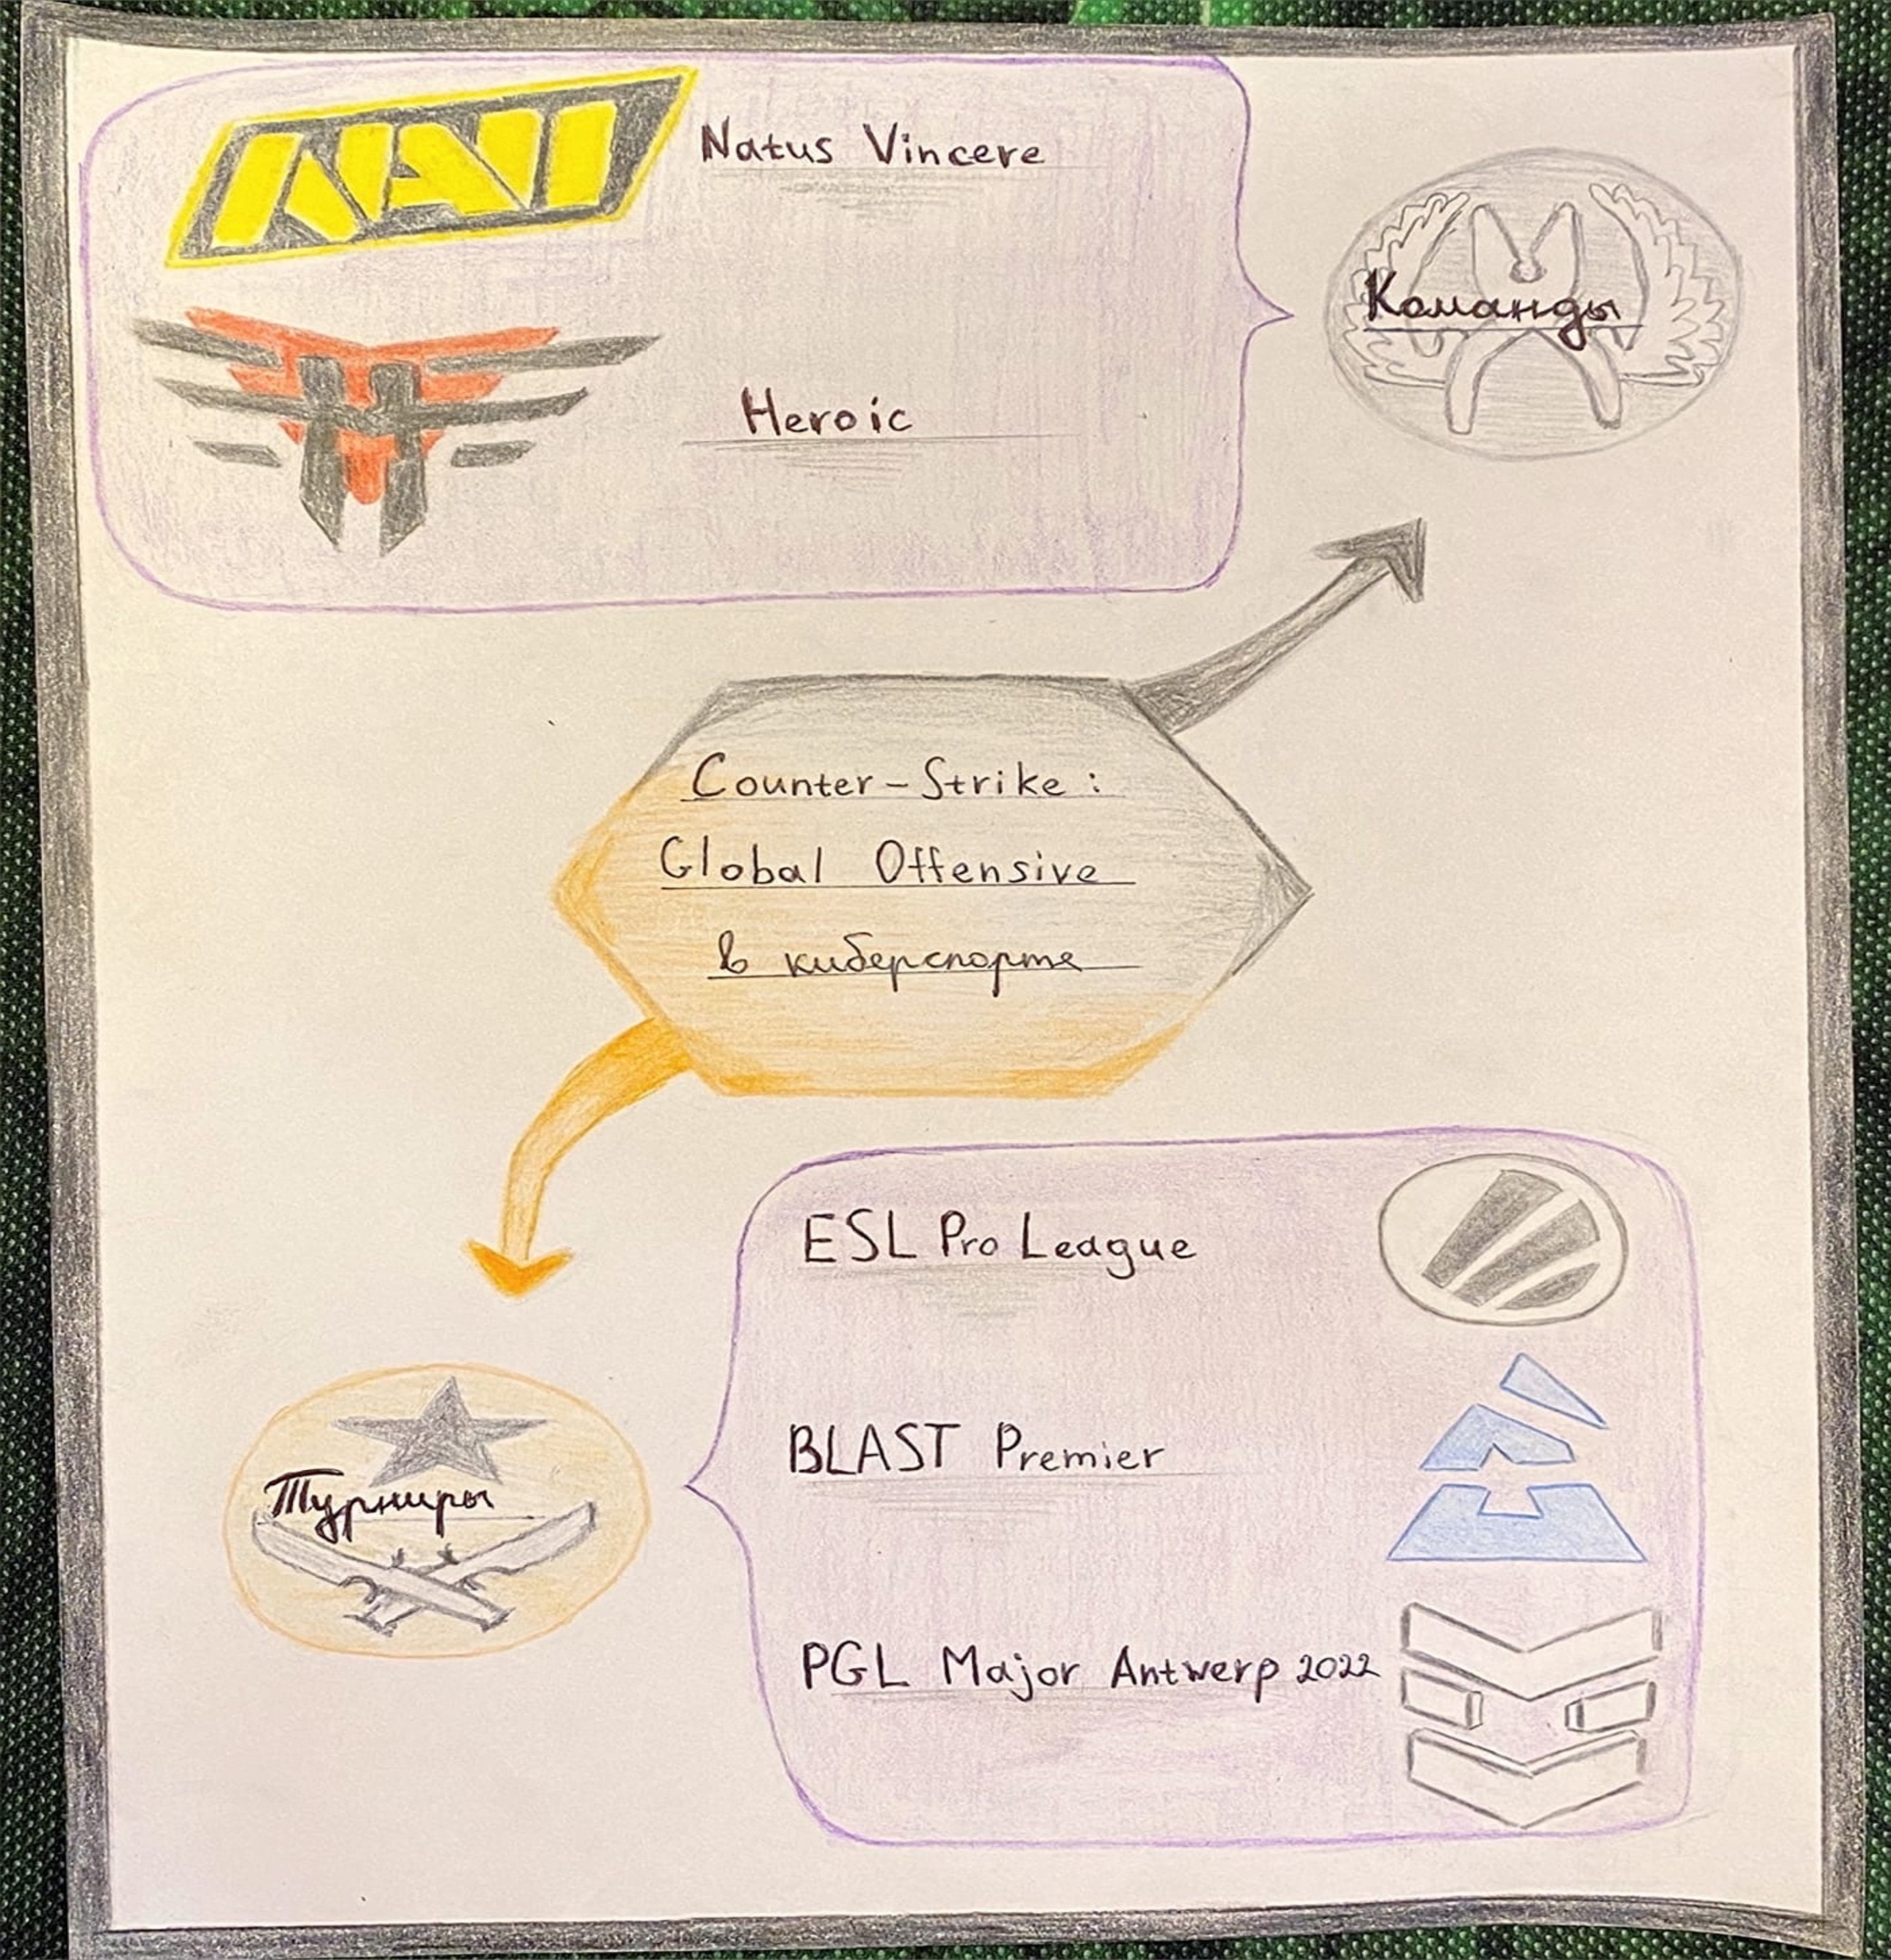 NAVI
Natus Vincere
Heroic
Команды
Counter-Strike:
Global Offensive
в киберспорте
ESL Pro League
BLAST Premier
Турниры
PGL Major Antwerp 2022